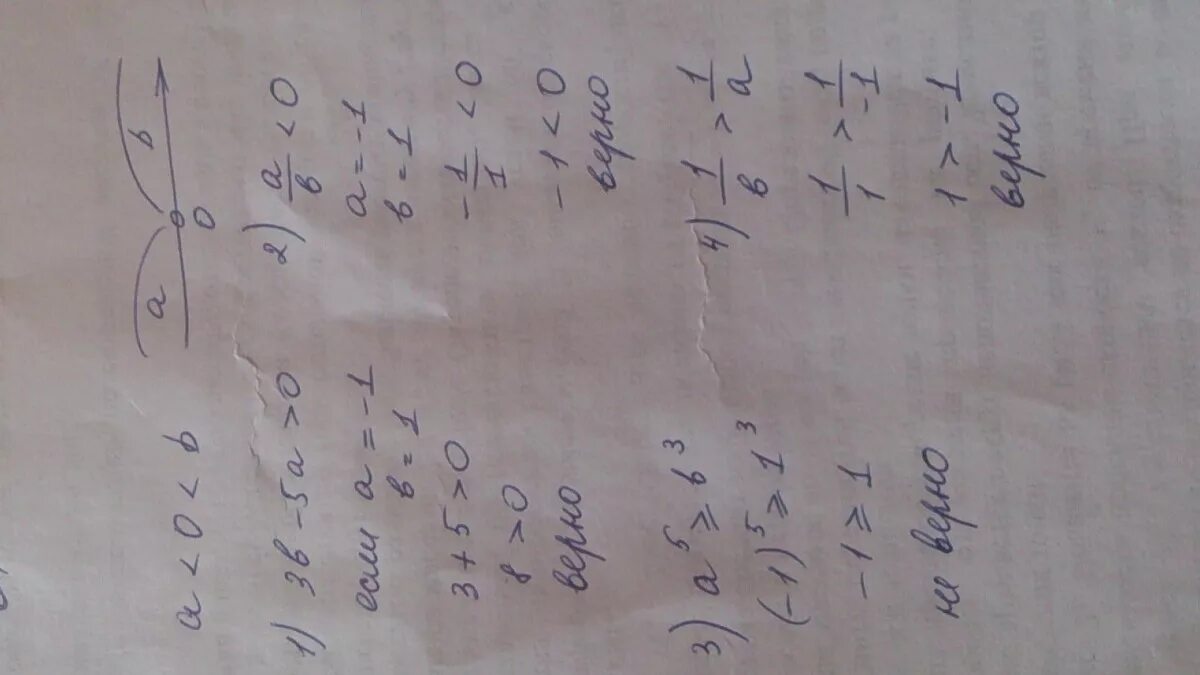 a < 0 < b
a b
0
1) 3в - 5a > 0
если a = -1
в = 1
3 + 5 > 0
8 > 0
верно
2) a/в < 0
a = -1
в = 1
- 1/1 < 0
-1 < 0
верно
3) a⁵ ≥ b³
(-1)⁵ ≥ 1³
-1 ≥ 1
не верно
4) 1/в > 1/a
1/1 > 1/-1
1 > -1
верно